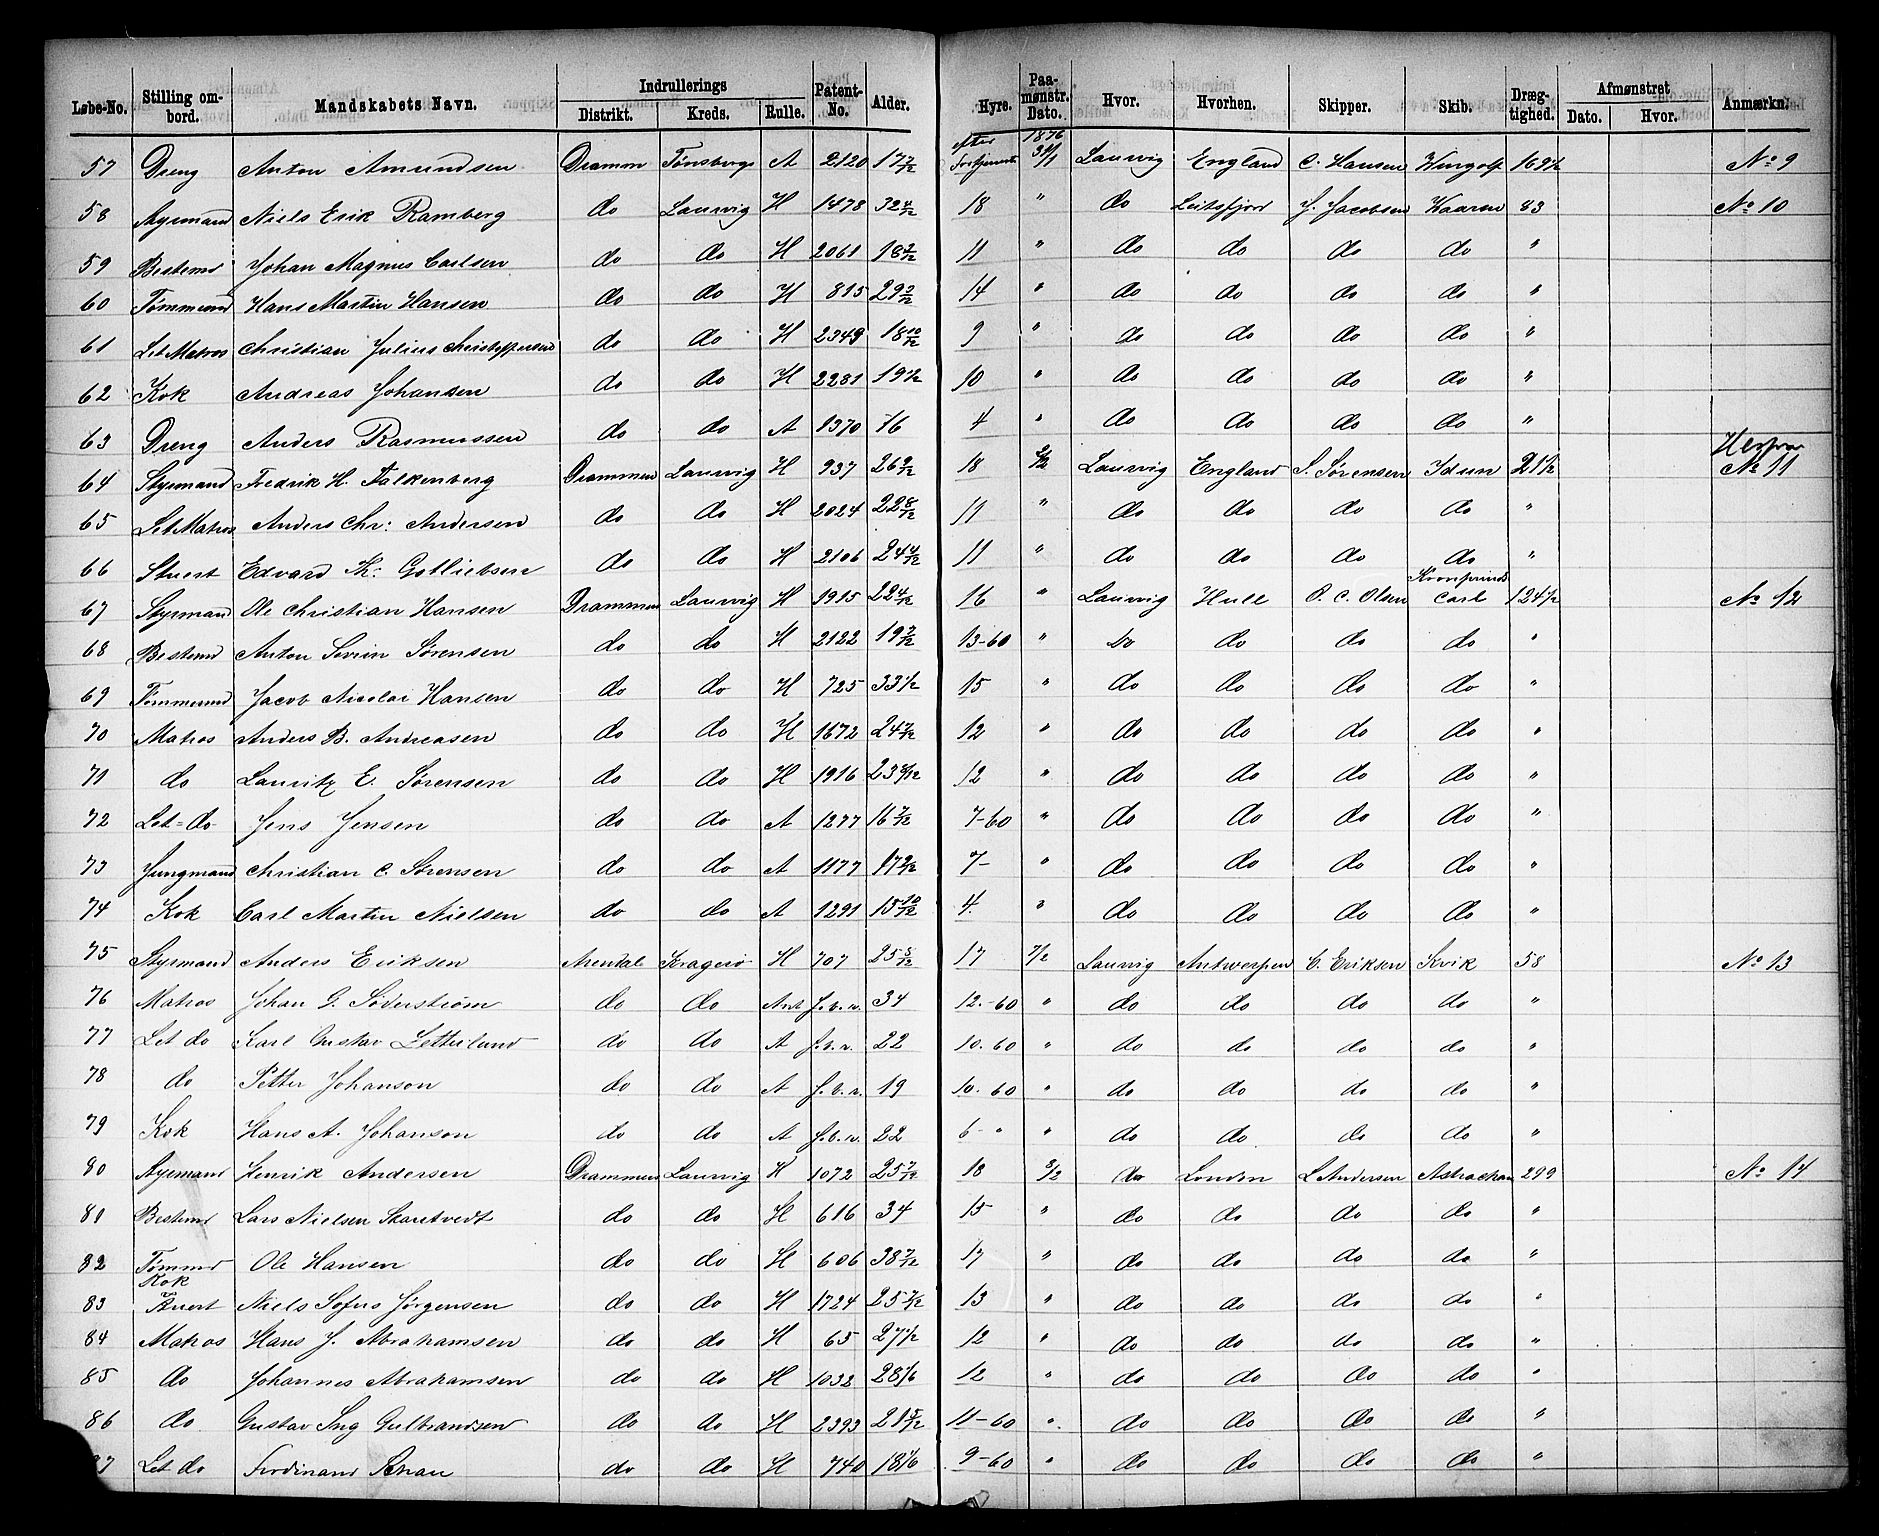 Løbe-No. Stilling ombord. Mandskabets Navn. Indrullerings Distrikt. Kreds. Rulle. Patent-No. Alder. Hyre. Paamønstr. Dato. Hvor. Hvorhen. Skipper. Skib. Drægtighed. Afmønstret Dato. Hvor. Anmærkn.
57 Dreng Anton Amundsen Dramm Tønsberg A 2120 17 7/12 efter Fortjeneste 1876 31/1 Laurvig England C. Hansen Wingolf 169½ No 9
58 Styrmand Niels Erik Ramberg do Laurvig H 1478 32 4/12 18 " do J. Jacobsen Haaren 83 No 10
59 Bestemd Johan Magnus Carlsen do do H 2061 18 2/12 11 " do do do do "
60 Tømmermd Hans Martin Hansen do do H 815 29 2/12 14 " do do do do "
61 Let Matros Christian Julius Christoffersen do do H 2349 18 10/12 9 " do do do do "
62 Kok Andreas Johansen do do H 2281 19½ 10 " do do do do "
63 Dreng Anders Rasmussen do do A 1370 16 4 " do do do do "
64 Styrmand Fredrik H. Falkenberg Drammen Laurvig H 937 26 9/12 18 2/2 Laurvig England S. Sørensen Idun 21½ No 11
65 Let Matros Anders Chr: Andersen do do H 2024 22 8/12 11 " do do do do "
66 Stuert Edvard Th: Gotliebsen do do H 2106 24 4/12 11 " do do do do "
67 Styrmand Ole Christian Hansen Drammen Laurvig H 1915 22 4/12 16 " Laurvig Hull O. C. Olsen Kronprinds Carl 124½ No 12
68 Bestemd Anton Severin Sørensen do do H 2122 19 7/12 13-60 " do do do do "
69 Tømmermd Jacob Nicolai Hansen do do H 725 33½ 15 " do do do do "
70 Matros Anders B. Andreasen do do H 1672 24 7/12 12 " do do do do "
71 do Lauritz E. Sørensen do do H 1916 23 4/12 12 " do do do do "
72 Let do Jens Jensen do do A 1277 16 7/12 7-60 " do do do do "
73 Jungmand Christian C. Sørensen do do A 1177 17 2/12 7- " do do do do "
74 Kok Carl Martin Nielsen do do A 1291 15 10/12 4. " do do do do "
75 Styrmand Anders Eriksen Arendal Kragerø H 707 25 5/12 17 7/2 Laurvig Antwerpen C. Eriksen Kvik 58 No 13
76 Matros Johan G. Söderstrøm do do Ant f.v.n. 34 12.-60 " do do do do "
77 Let do Karl Gustav do do A f.v.n. 22 10.60 " do do do do "
78 do Petter Johanson do do A f.v.n. 19 10.60 " do do do do "
79 Kok Hans A. Johanson do do A f.v.n. 22 6- " " do do do do "
80 Styrmand Henrik Andersen Drammen Laurvig H 1072 25 7/12 18 8/2 do London L. Andersen Astrachan 299 No 14
81 Bestemd Lars Nielsen Skaretvedt do do H 616 34 15 " do do do do "
82 Tømmrd Ole Hansen do do H 606 38 7/12 17 " do do do do "
83 Kok Stuert Niels Sofus Jørgensen do do H 1724 25 7/12 13 " do do do do "
84 Matros Hans J. Abrahamsen do do H 65 27½ 12 " do do do do "
85 do Johannes Abrahamsen do do H 1032 28 1/6 12 " do do do do "
86 do Gustav Ing Gulbrandsen do do H 2393 21 5/12 11-60 " do do do do "
87 Let do Ferdinand do do H 740 18 1/6 9-60 " do do do do "